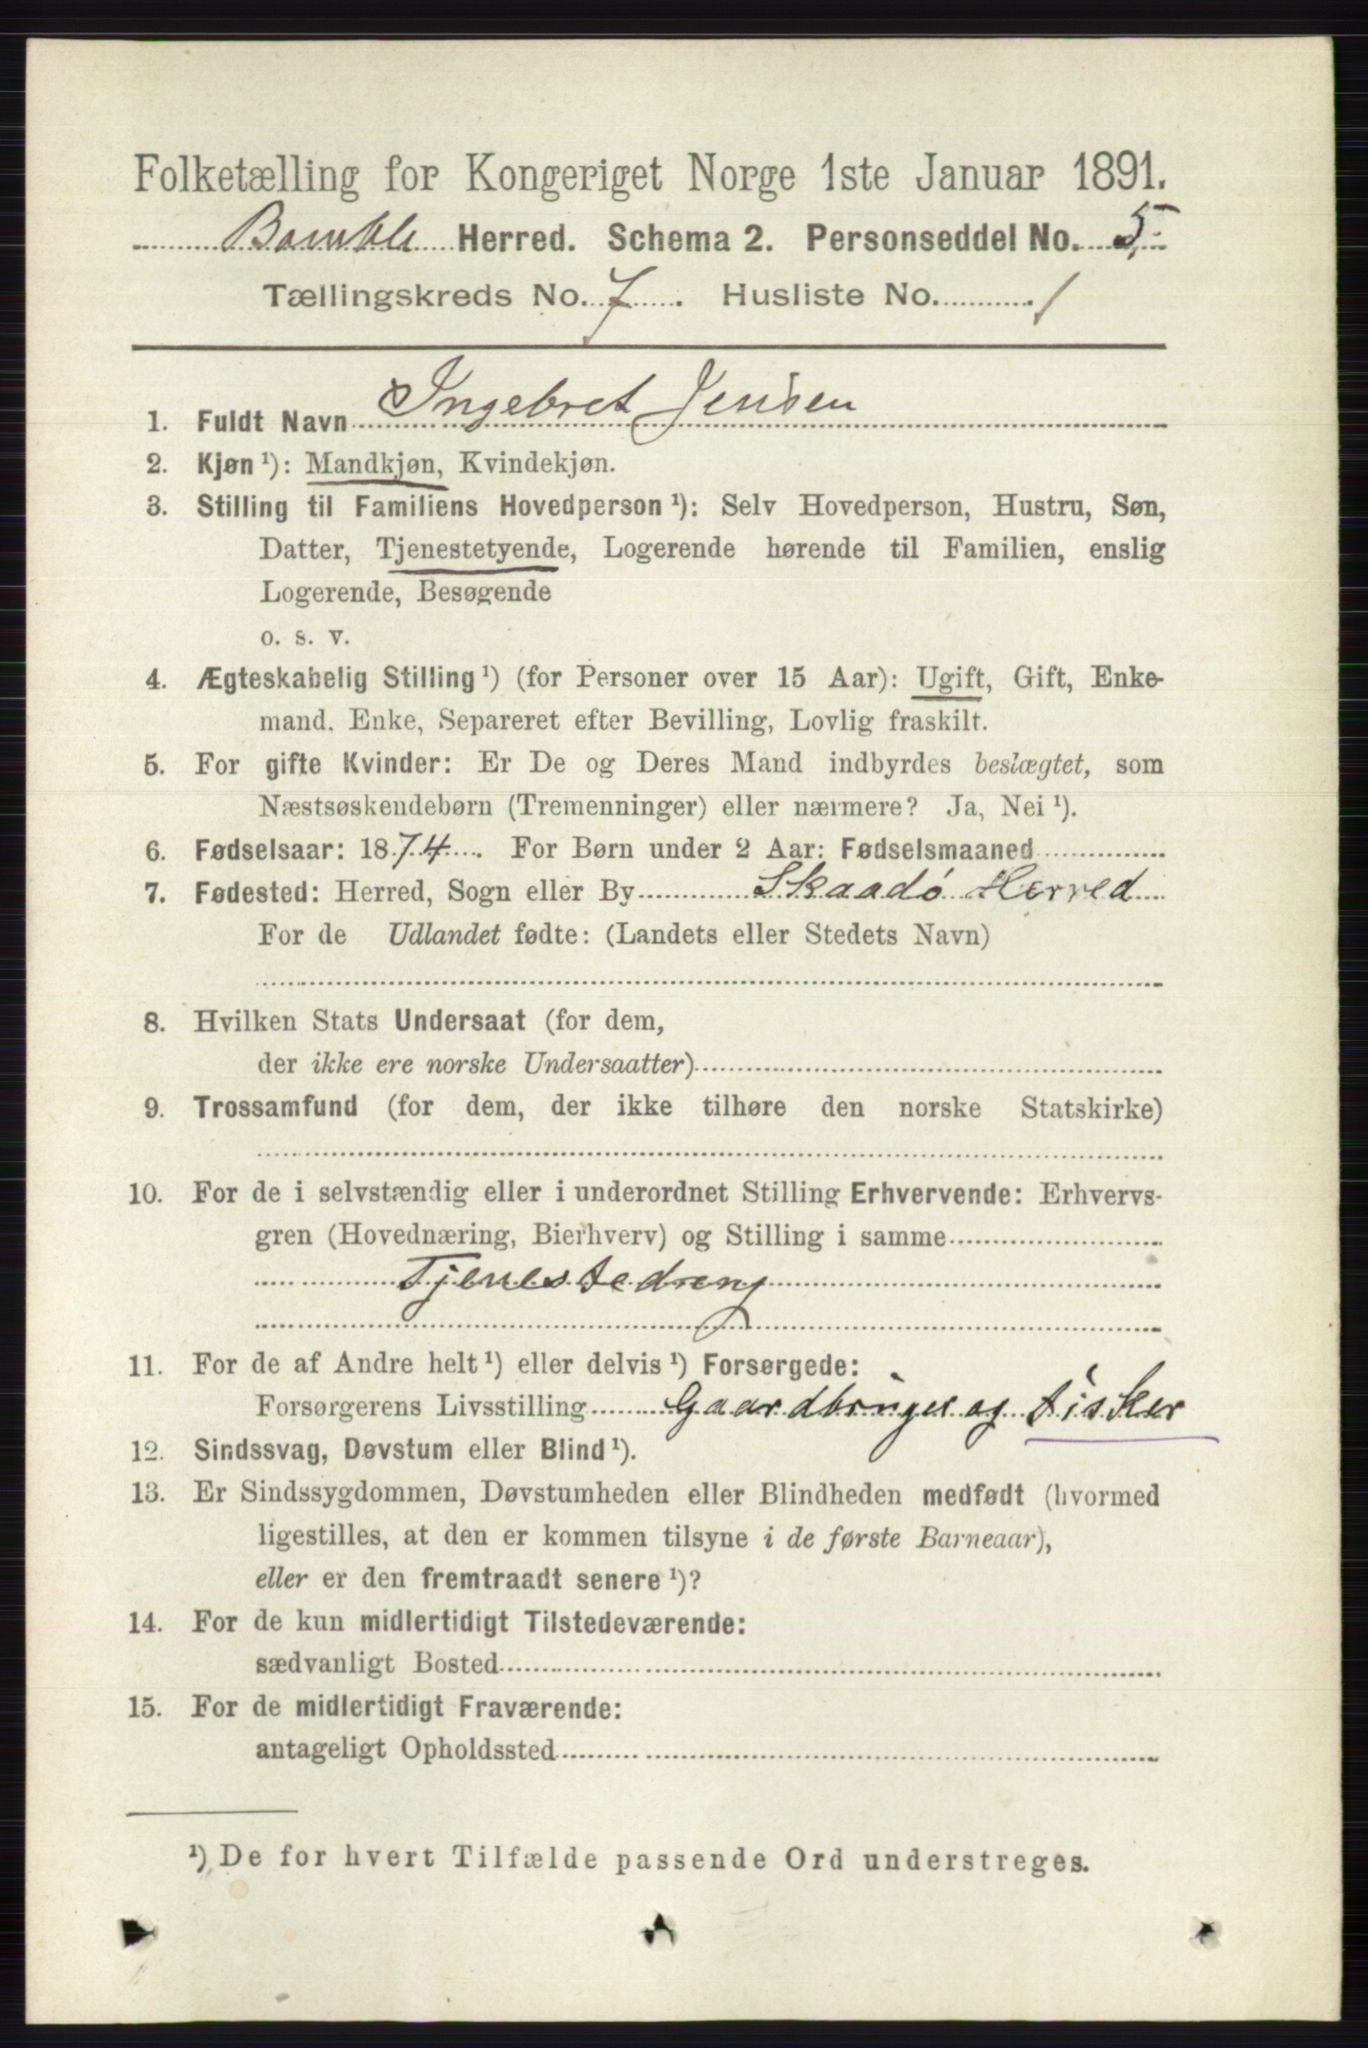 Folketælling for Kongeriget Norge 1ste Januar 1891.
Bamble Herred. Schema 2. Personseddel No. 5.
Tællingskreds No. 7. Husliste No. 1
1. Fuldt Navn Ingebret Jensen
2. Kjøn ¹): Mandkjøn, Kvindekjøn.
3. Stilling til Familiens Hovedperson ¹): Selv Hovedperson, Hustru, Søn,
Datter, Tjenestetyende, Logerende hørende til Familien, enslig
Logerende, Besøgende
o. s. v.
4. Ægteskabelig Stilling ¹) (for Personer over 15 Aar): Ugift, Gift, Enke-
mand, Enke, Separeret efter Bevilling, Lovlig fraskilt.
5. For gifte Kvinder: Er De og Deres Mand indbyrdes beslægtet, som
Næstsøskendebørn (Tremenninger) eller nærmere? Ja, Nei ¹).
6. Fødselsaar: 1874. For Børn under 2 Aar: Fødselsmaaned
7. Fødested: Herred, Sogn eller By Skaadø Herred
For de Udlandet fødte: (Landets eller Stedets Navn)
8. Hvilken Stats Undersaat (for dem,
der ikke ere norske Undersaatter)
9. Trossamfund (for dem, der ikke tilhøre den norske Statskirke)
10. For de i selvstændig eller i underordnet Stilling Erhvervende: Erhvervs-
gren (Hovednæring, Bierhverv) og Stilling i samme
Tjenestedreng
11. For de af Andre helt ¹) eller delvis ¹) Forsørgede:
Forsørgerens Livsstilling Gaardbruger og Fisker
12. Sindssvag, Døvstum eller Blind ¹).
13. Er Sindssygdommen, Døvstumheden eller Blindheden medfødt (hvormed
ligestilles, at den er kommen tilsyne i de første Barneaar),
eller er den fremtraadt senere ¹)?
14. For de kun midlertidigt Tilstedeværende:
sædvanligt Bosted
15. For de midlertidigt Fraværende:
antageligt Opholdssted
¹) De for hvert Tilfælde passende Ord understreges.